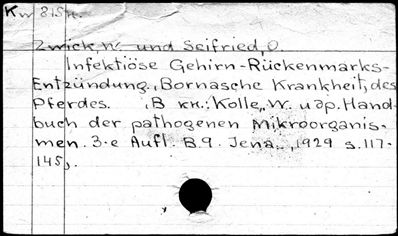 Kw 815н.
Zwick, W. und Seifried, O.
Infektiöse Gehirn-Rückenmarks-
Entzündung, Bornasche Krankheit, des
Pferdes. (В кн.: Kolle, W. u др. Hand-
buch der pathogenen Mikroorganis-
men. 3-e Aufl. B.9. Jena, 1929 s. 117-
145).